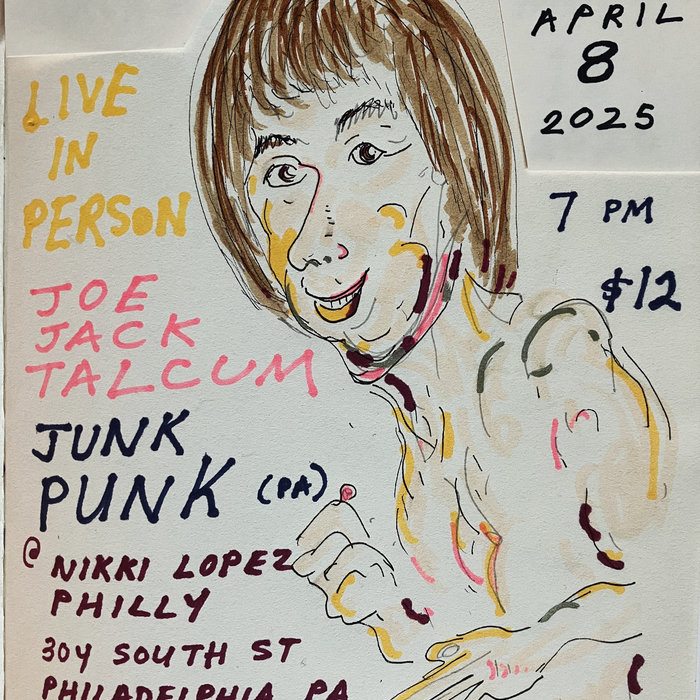 LIVE
IN
PERSON
JOE
JACK
TALCUM
JUNK
PUNK (PA)
@ NIKKI LOPEZ
PHILLY
304 SOUTH ST
PHILADELPHIA PA
APRIL
8
2025
7 PM
$12